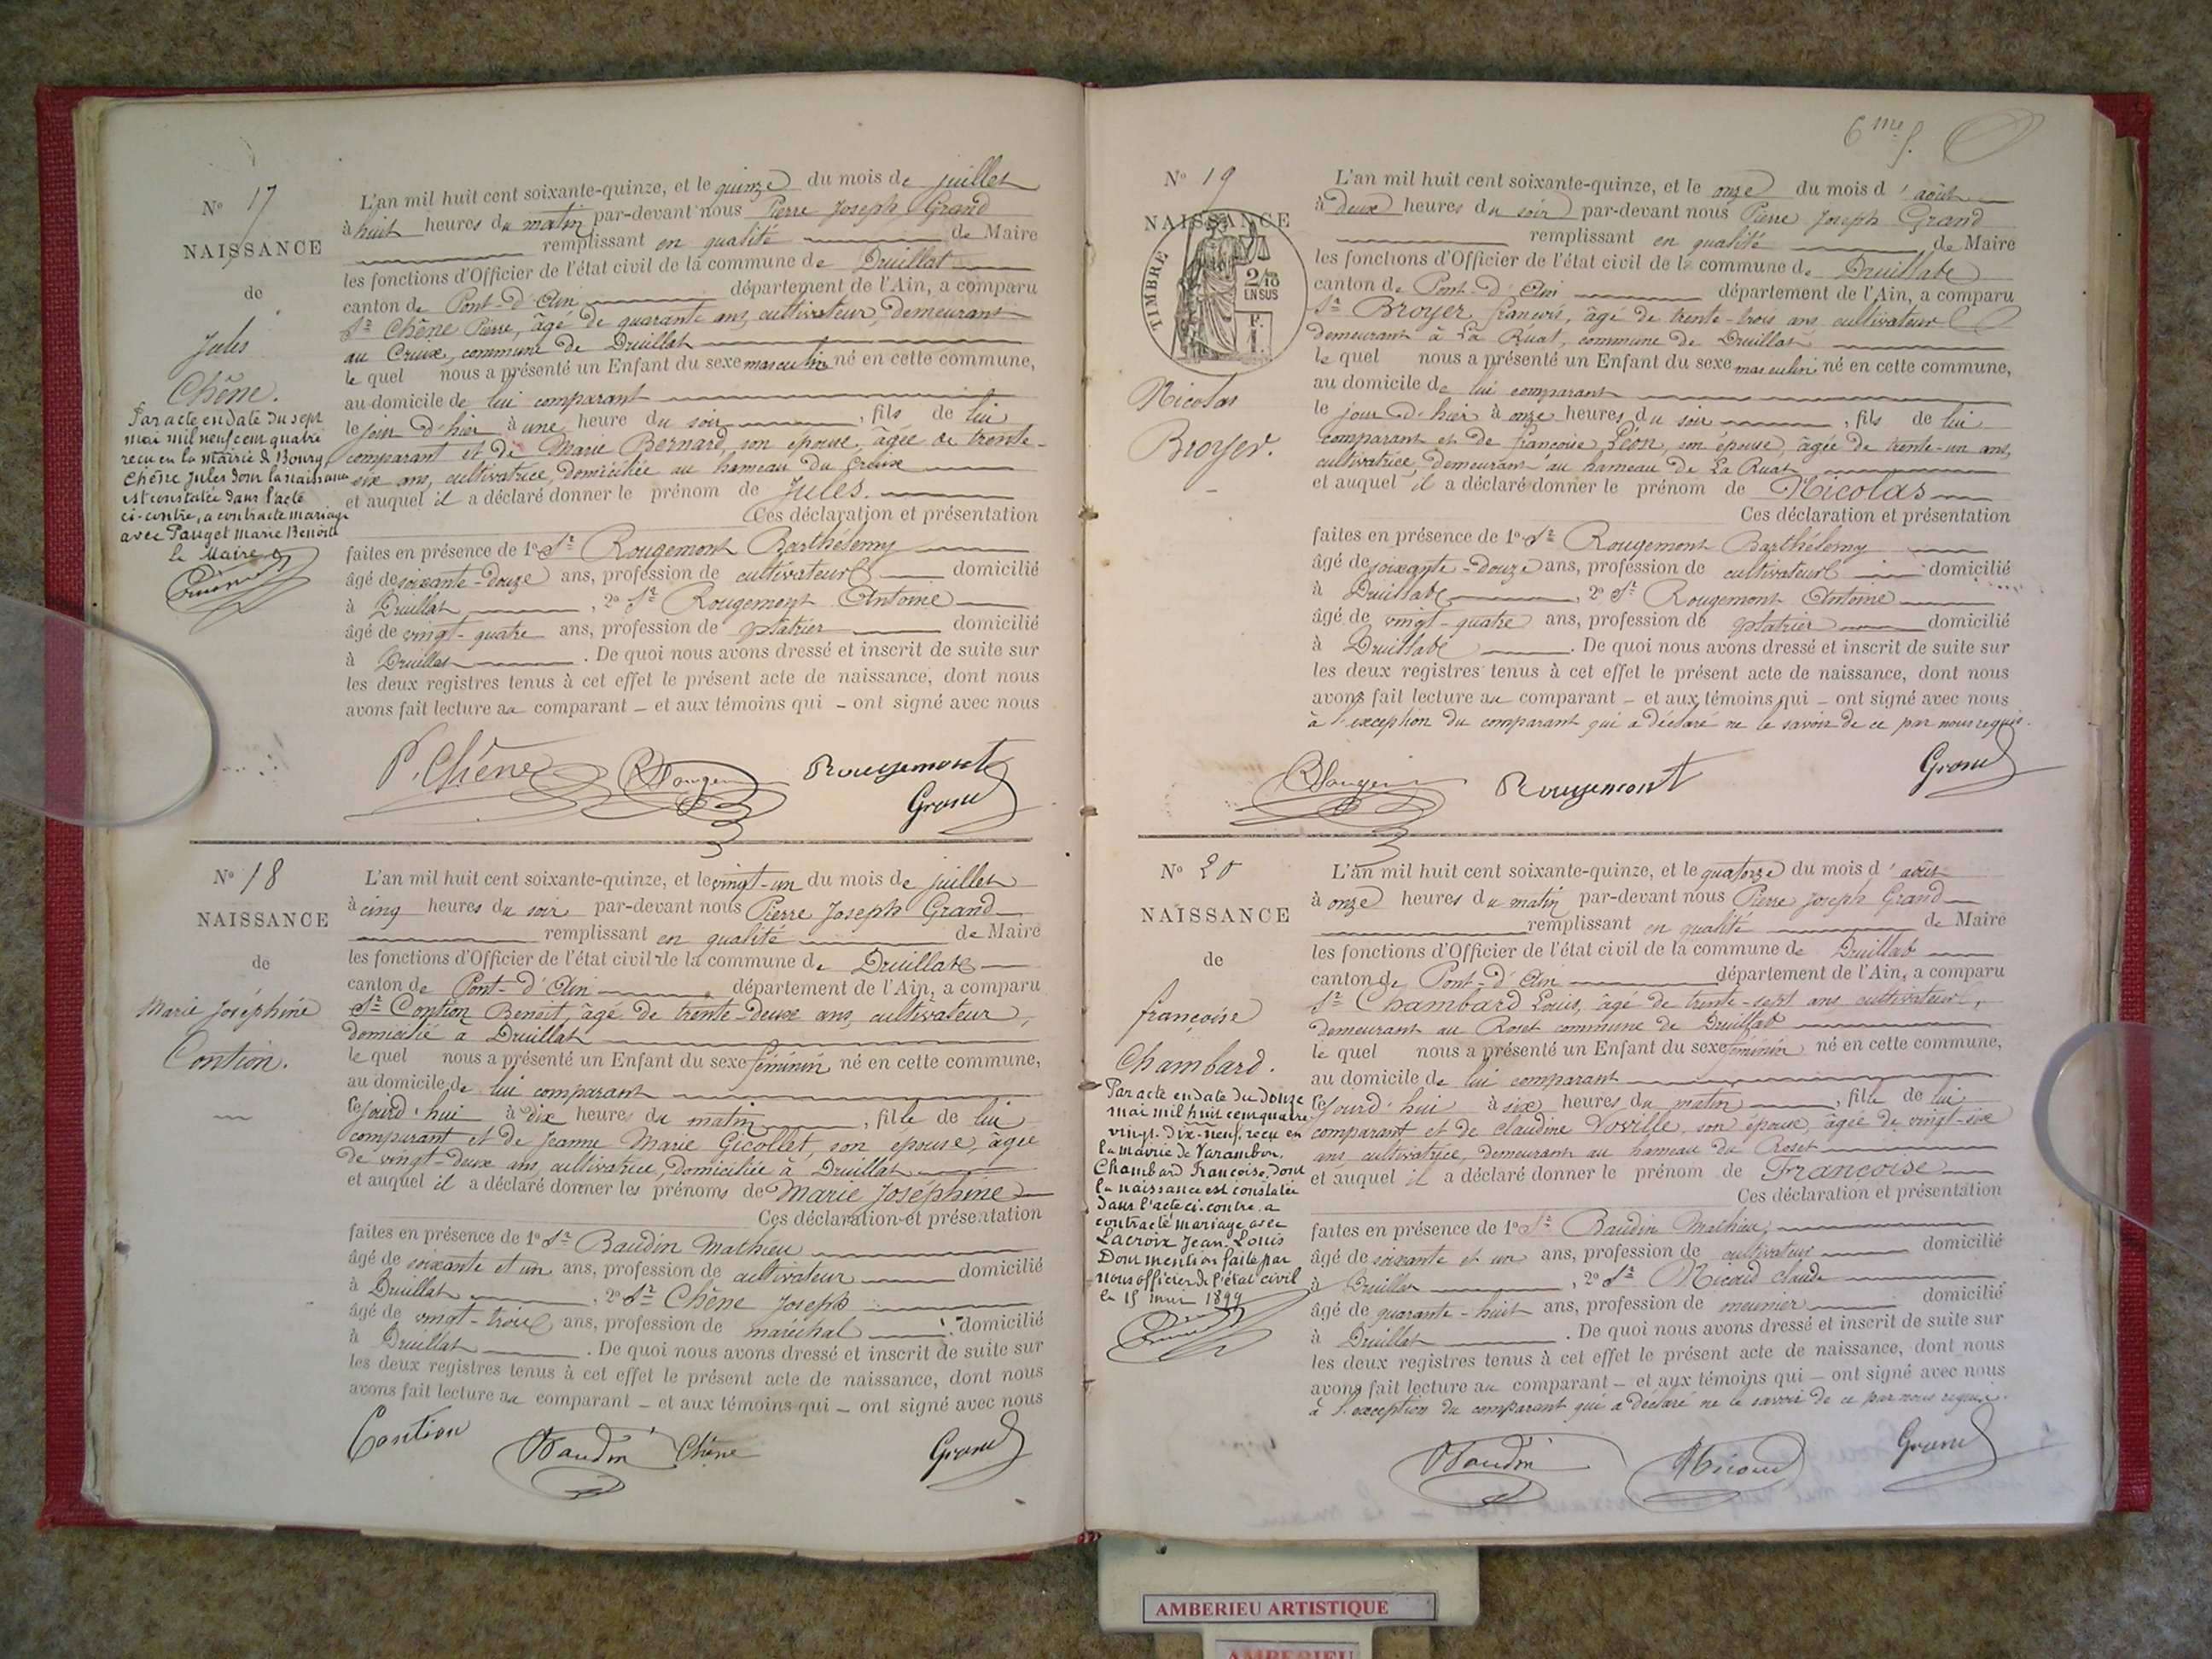 N° 17
NAISSANCE
de
Jules
Chêne.
Par acte en date du sept
mai mil neuf cent quatre
reçu en la mairie de Bourg,
Chêne Jules dont la naissance
est constatée dans l'acte
ci-contre, a contracté mariage
avec Pauget Marie Benoite
le Maire
L'an mil huit cent soixante-quinze, et le quinze du mois de juillet
à huit heures du matin par-devant nous Pierre Joseph Grand
remplissant en qualité de Maire
les fonctions d'Officier de l'état civil de la commune de Druillat
canton de Pont-d'Ain département de l'Ain, a comparu
Sr Chêne Pierre, âgé de quarante ans, cultivateur, demeurant
au Creux, commune de Druillat
le quel nous a présenté un Enfant du sexe masculin né en cette commune,
au domicile de lui comparant
le jour d'hier à une heure du soir, fils de lui
comparant et de Marie Bernard, son épouse, âgée de trente-
six ans, cultivatrice, domiciliée au hameau du Creux
et auquel il a déclaré donner le prénom de Jules.
Ces déclaration et présentation
faites en présence de 1° Sr Rougemont Barthélemy
âgé de soixante-douze ans, profession de cultivateur domicilié
à Druillat, 2° Sr Rougemont Antoine
âgé de vingt-quatre ans, profession de platrier domicilié
à Druillat. De quoi nous avons dressé et inscrit de suite sur
les deux registres tenus à cet effet le présent acte de naissance, dont nous
avons fait lecture au comparant – et aux témoins qui – ont signé avec nous
P. Chêne Rougemont
Grand
N° 18
NAISSANCE
de
Marie Joséphine
Contion.
L'an mil huit cent soixante-quinze, et le vingt-un du mois de juillet
à cinq heures du soir par-devant nous Pierre Joseph Grand
remplissant en qualité de Maire
les fonctions d'Officier de l'état civil de la commune de Druillat
canton de Pont-d'Ain département de l'Ain, a comparu
Sr Contion Benoit, âgé de trente-deux ans, cultivateur,
domicilié à Druillat
le quel nous a présenté un Enfant du sexe féminin né en cette commune,
au domicile de lui comparant
ce jourd'hui à dix heures du matin, fille de lui
comparant et de Jeanne Marie Gicollet, son épouse, âgée
de vingt-deux ans, cultivatrice, domiciliée à Druillat
et auquel il a déclaré donner les prénoms de Marie Joséphine
Ces déclaration et présentation
faites en présence de 1° Sr Baudin Mathieu
âgé de soixante et un ans, profession de cultivateur domicilié
à Druillat, 2° Sr Chêne Joseph
âgé de vingt-trois ans, profession de maréchal domicilié
à Druillat. De quoi nous avons dressé et inscrit de suite sur
les deux registres tenus à cet effet le présent acte de naissance, dont nous
avons fait lecture au comparant – et aux témoins qui – ont signé avec nous
Contion Baudin Chêne Grand
6me f.
N° 19
NAISSANCE
TIMBRE
2/10
EN SUS
Nicolas
Broyer.
L'an mil huit cent soixante-quinze, et le onze du mois d'août
à deux heures du soir par-devant nous Pierre Joseph Grand
remplissant en qualité de Maire
les fonctions d'Officier de l'état civil de la commune de Druillat
canton de Pont-d'Ain département de l'Ain, a comparu
Sr Broyer françois, âgé de trente-trois ans, cultivateur
demeurant à La Ruat, commune de Druillat
le quel nous a présenté un Enfant du sexe masculin né en cette commune,
au domicile de lui comparant
le jour d'hier à onze heures du soir, fils de lui
comparant et de françoise Léon, son épouse, âgée de trente-un ans,
cultivatrice, demeurant au hameau de La Ruat
et auquel il a déclaré donner le prénom de Nicolas
Ces déclaration et présentation
faites en présence de 1° Sr Rougemont Barthélemy
âgé de soixante-douze ans, profession de cultivateur domicilié
à Druillat, 2° Sr Rougemont Antoine
âgé de vingt-quatre ans, profession de platrier domicilié
à Druillat. De quoi nous avons dressé et inscrit de suite sur
les deux registres tenus à cet effet le présent acte de naissance, dont nous
avons fait lecture au comparant – et aux témoins qui – ont signé avec nous
à l'exception du comparant qui a déclaré ne le savoir de ce par nous requis.
Rougemont Grand
N° 20
NAISSANCE
de
françoise
Chambard.
Par acte en date du douze
mai mil huit cent quatre
vingt-dix-neuf, reçu en
la mairie de Varambon,
Chambard Françoise, dont
la naissance est constatée
dans l'acte ci-contre, a
contracté mariage avec
Lacroix Jean-Louis
Dont mention faite par
nous officier de l'état civil
le 15 mai 1899
L'an mil huit cent soixante-quinze, et le quatorze du mois d'août
à onze heures du matin par-devant nous Pierre Joseph Grand
remplissant en qualité de Maire
les fonctions d'Officier de l'état civil de la commune de Druillat
canton de Pont-d'Ain département de l'Ain, a comparu
Sr Chambard Louis, âgé de trente-sept ans cultivateur,
demeurant au Roset commune de Druillat
le quel nous a présenté un Enfant du sexe féminin né en cette commune,
au domicile de lui comparant
ce jourd'hui à six heures du matin, fille de lui
comparant et de Claudine son épouse, âgée de vingt-six
ans, cultivatrice, demeurant au hameau du Roset
et auquel il a déclaré donner le prénom de Françoise
Ces déclaration et présentation
faites en présence de 1° Sr Baudin Mathieu,
âgé de soixante et un ans, profession de cultivateur domicilié
à Druillat, 2° Sr Nicoud Claude
âgé de quarante-huit ans, profession de meunier domicilié
à Druillat. De quoi nous avons dressé et inscrit de suite sur
les deux registres tenus à cet effet le présent acte de naissance, dont nous
avons fait lecture au comparant – et aux témoins qui – ont signé avec nous
à l'exception du comparant qui a déclaré ne le savoir de ce par nous requis.
Baudin Nicoud Grand
AMBERIEU ARTISTIQUE
AMBERIEU